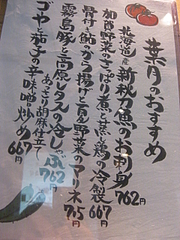 葉月のおすすめ
北海道産新秋刀魚のお刺身
762円
加賀野菜のさっぱり煮と蒸し鶏の冷製
667円
骨付き鮎のから揚げと夏野菜のマリネ
705円
霧島豚と高原レタスの冷しゃぶ
あっさり胡麻仕立て
762円
ゴーヤと茄子の辛味噌炒め
667円